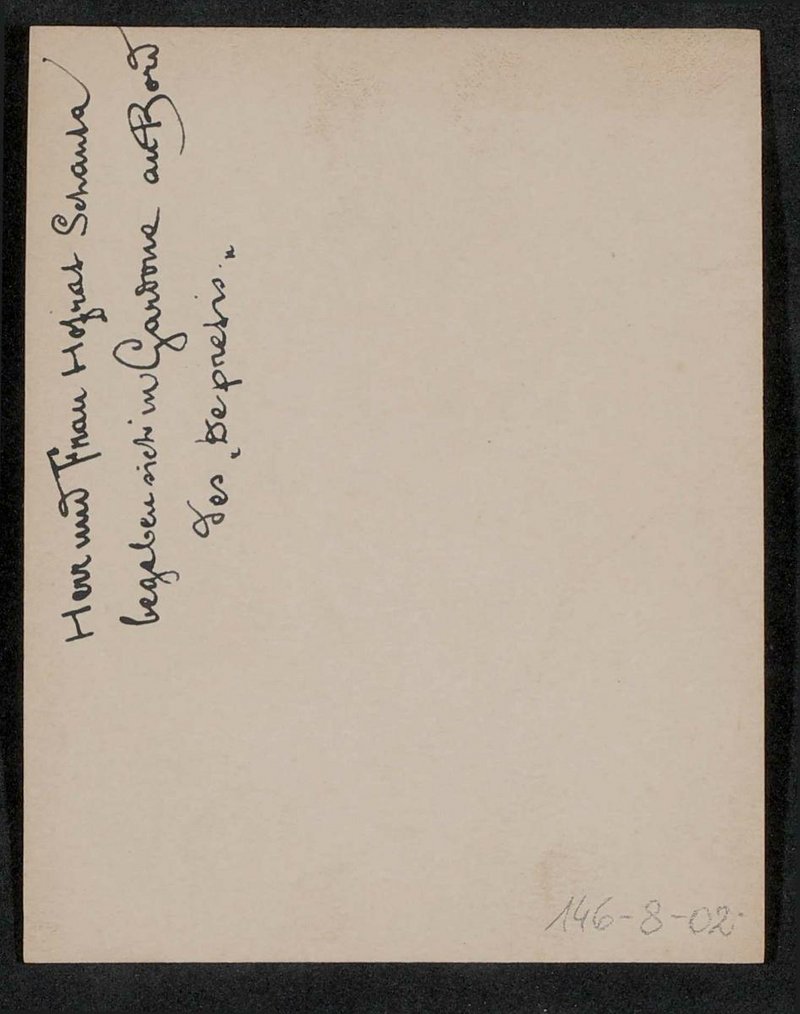 Herr und Frau Hofrat Schauta
begaben sich in Gardone an Bord
des „Depretis."
146-8-02